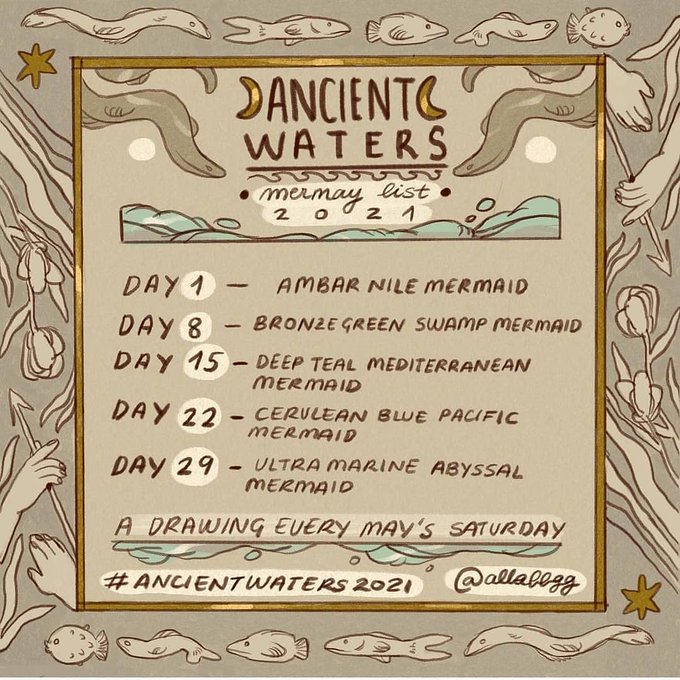 ANCIENT
WATERS
• mermay list •
2021
DAY 1 – AMBAR NILE MERMAID
DAY 8 – BRONZE GREEN SWAMP MERMAID
DAY 15 – DEEP TEAL MEDITERRANEAN
MERMAID
DAY 22 – CERULEAN BLUE PACIFIC
MERMAID
DAY 29 – ULTRA MARINE ABYSSAL
MERMAID
A DRAWING EVERY MAY'S SATURDAY
#ANCIENTWATERS2021 @allabbgg